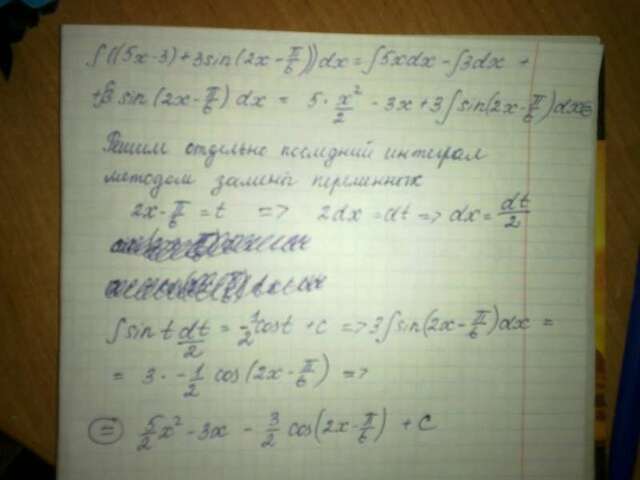 ∫((5x-3)+3sin(2x-π/6))dx = ∫5xdx - ∫3dx +
+∫3 sin(2x-π/6) dx = 5·x²/2 - 3x+3∫sin(2x-π/6)dx =
Решим отдельно последний интеграл
методом замены переменных
2x-π/6 = t => 2dx = dt => dx = dt/2
∫sin t dt/2 = -1/2 cost + c => 3∫sin(2x-π/6)dx =
= 3·-1/2 cos(2x-π/6) =>
= 5/2 x² - 3x - 3/2 cos(2x-π/6) + C